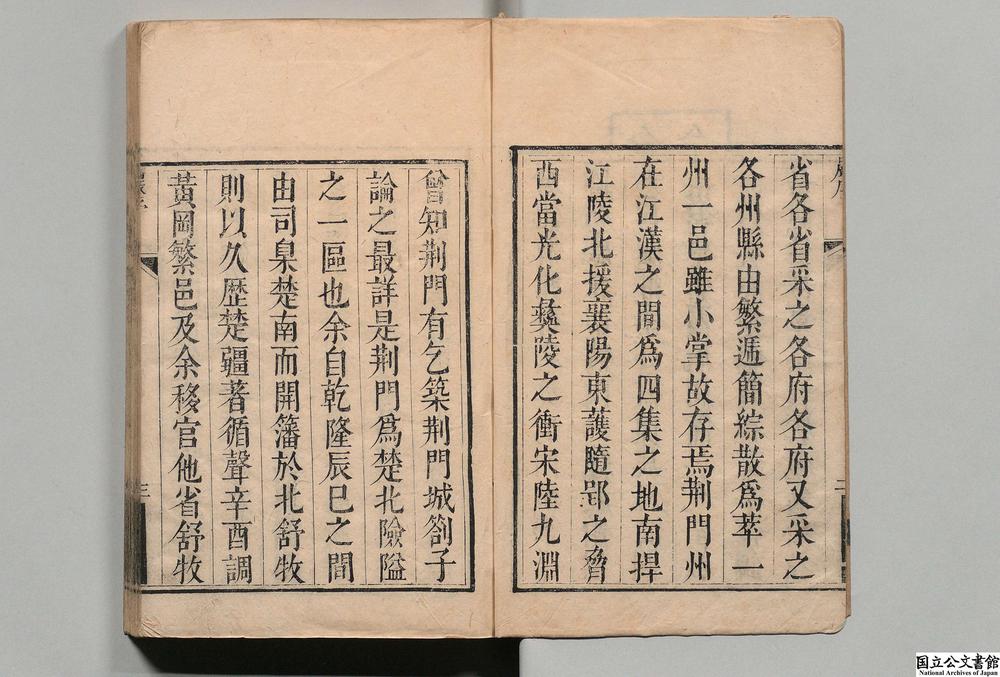 省各省采之各府各府又采之
各州縣由繁遞簡綜散爲萃一
州一邑雖小掌故存焉荆門州
在江漢之間爲四集之地南捍
江陵北援襄陽東護隨郢之脅
西當光化彝陵之衝宋陸九淵
曾知荆門有乞築荆門城劄子
論之最詳是荆門爲楚北險隘
之一區也余自乾隆辰巳之間
由司臬楚南而開藩於北舒牧
則以久歴楚疆著循聲辛酉調
黃岡繁邑及余移官他省舒牧
三
国立公文書館
National Archives of Japan